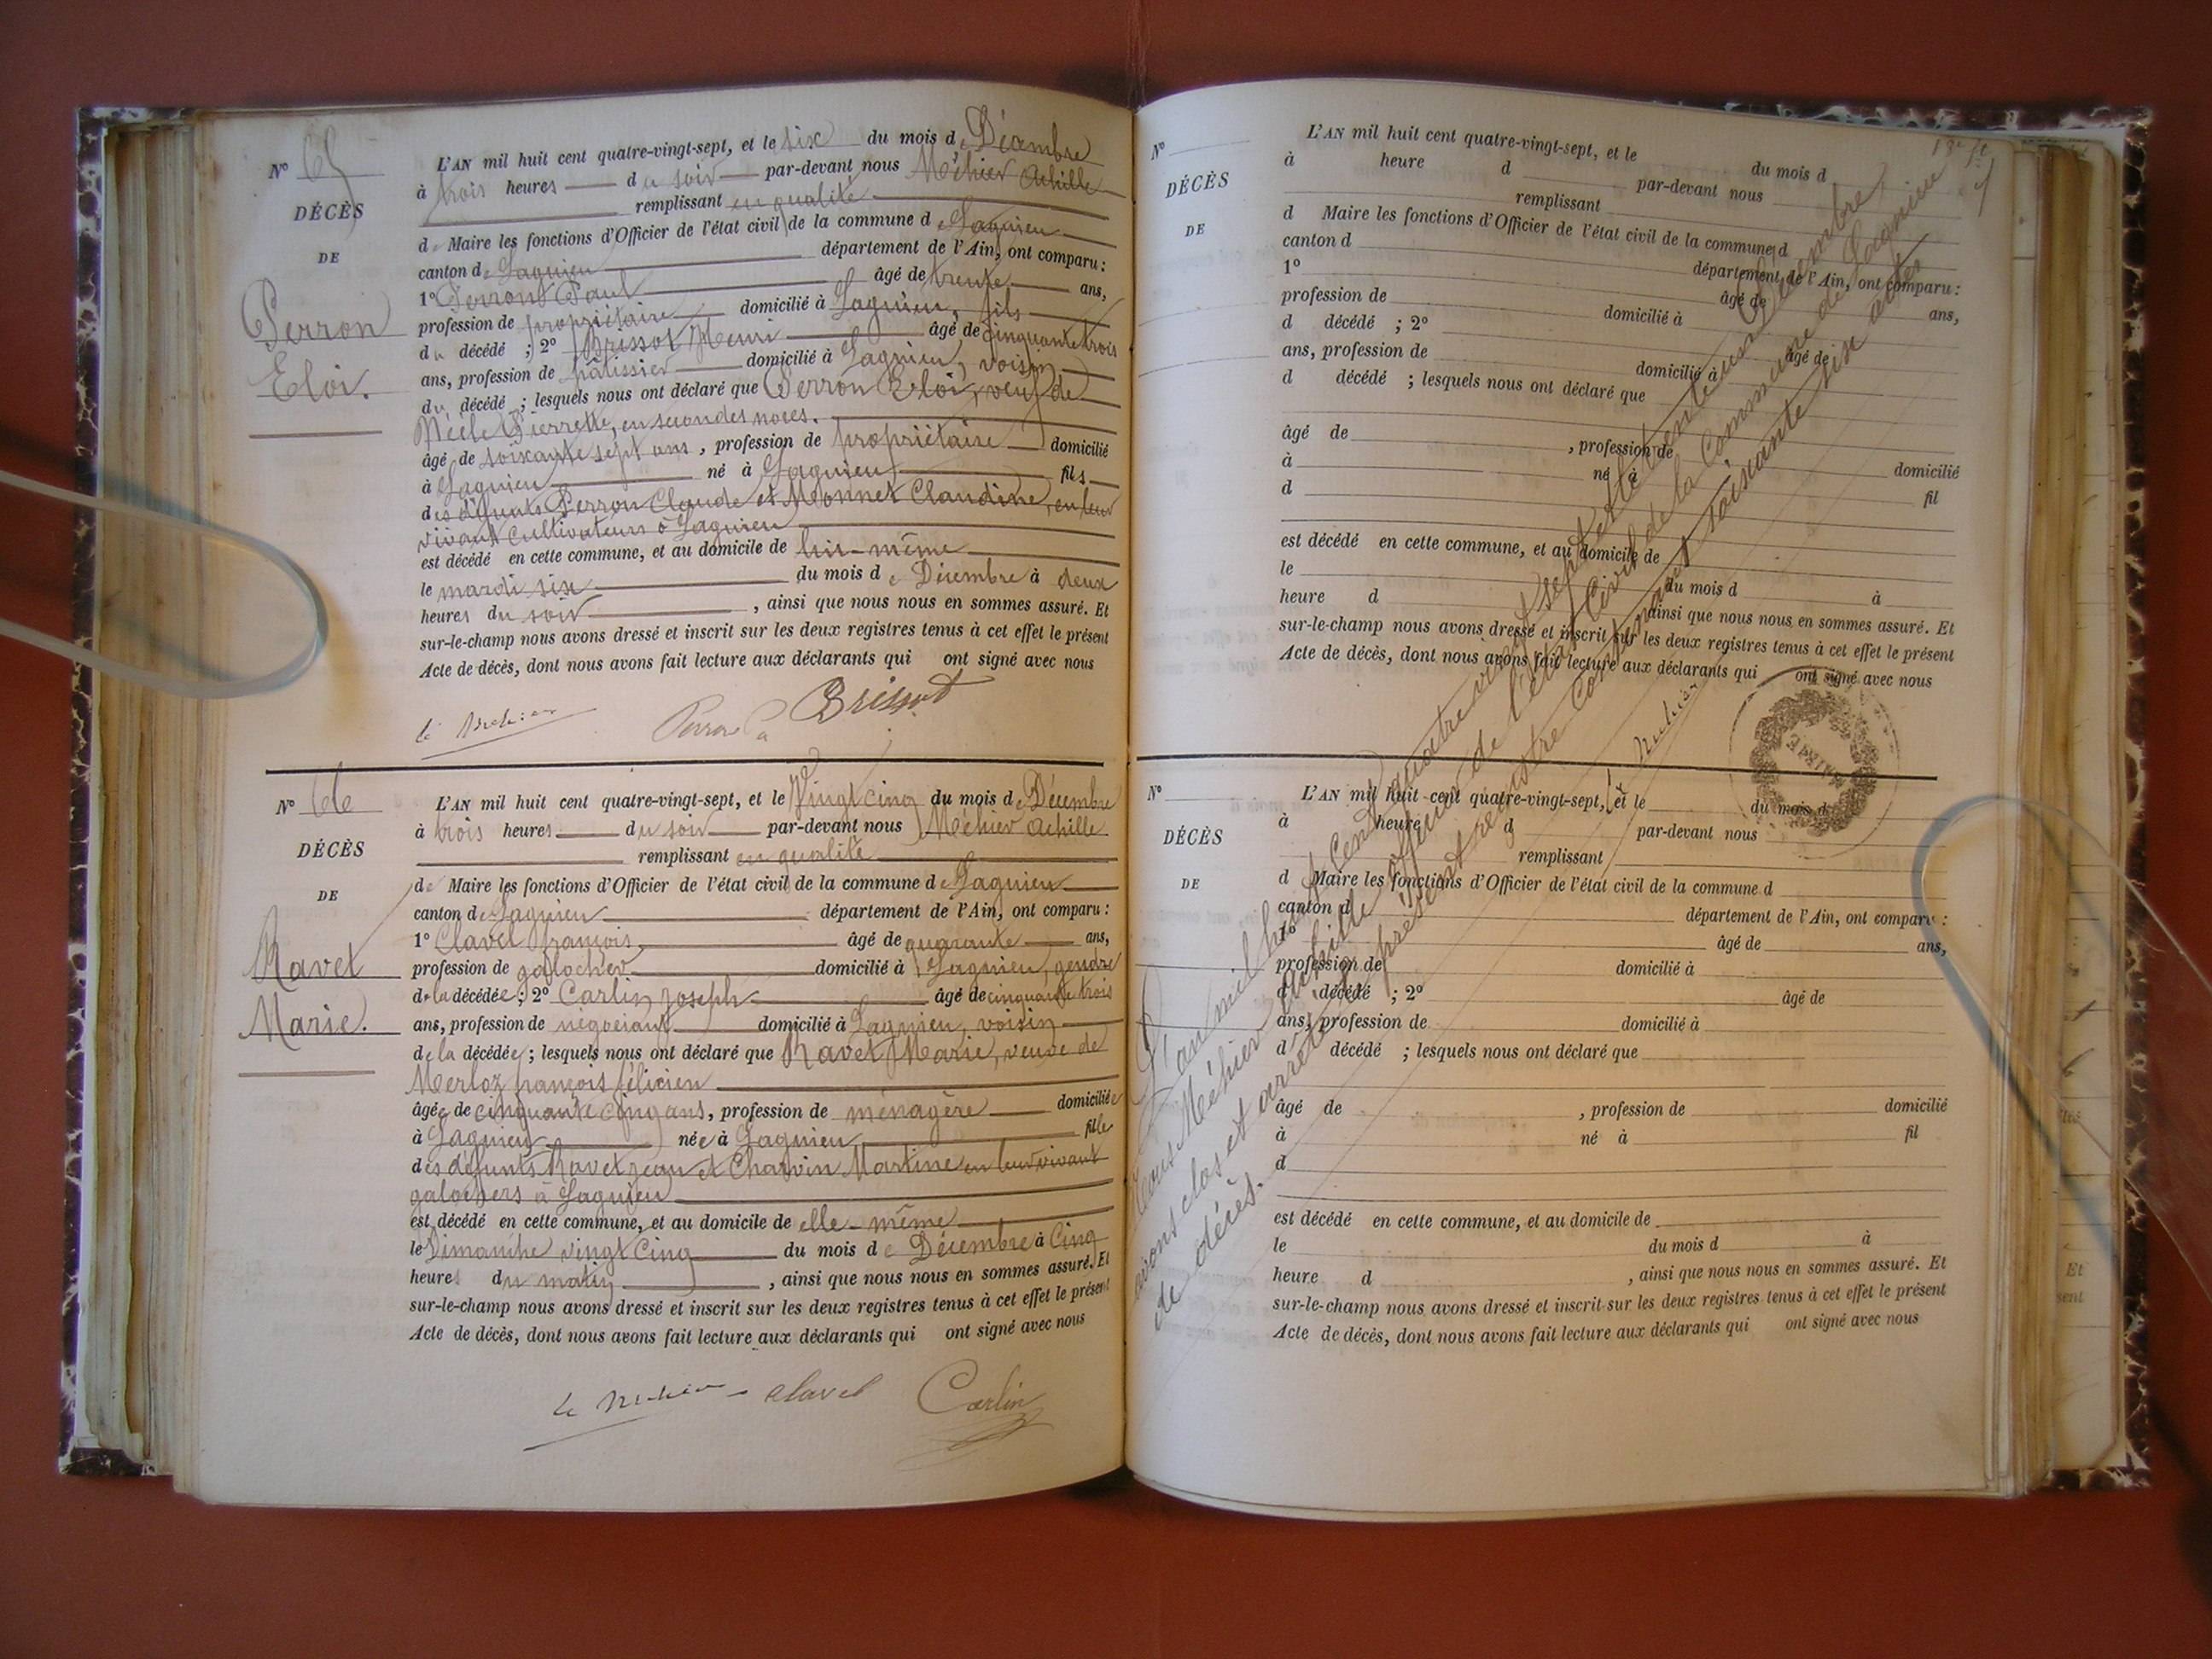 N° 65
DÉCÈS
DE
Perron
Eloi.
L'AN mil huit cent quatre-vingt-sept, et le six du mois de Décembre
à trois heures du soir par-devant nous Méhier Achille
remplissant en qualité
de Maire les fonctions d'Officier de l'état civil de la commune de Lagnieu
canton de Lagnieu département de l'Ain, ont comparu :
1° Perron Paul âgé de trente ans,
profession de propriétaire domicilié à Lagnieu, fils
du décédé ; 2° Brissot Henri âgé de cinquante trois
ans, profession de pâtissier domicilié à Lagnieu, voisin
du décédé ; lesquels nous ont déclaré que Perron Eloi, veuf de
Pierrette, en secondes noces.
âgé de soixante sept ans, profession de propriétaire domicilié
à Lagnieu né à Lagnieu fils
des défunts Perron Claude et Monnet Claudine, en leur
vivant cultivateurs à Lagnieu
est décédé en cette commune, et au domicile de lui-même
le mardi six du mois de Décembre à deux
heures du soir, ainsi que nous nous en sommes assuré. Et
sur-le-champ nous avons dressé et inscrit sur les deux registres tenus à cet effet le présent
Acte de décès, dont nous avons fait lecture aux déclarants qui ont signé avec nous
Perron Brissot
N° 66
DÉCÈS
DE
Ravet
Marie.
L'AN mil huit cent quatre-vingt-sept, et le Vingt cinq du mois de Décembre
à trois heures du soir par-devant nous Méhier Achille
remplissant en qualité
de Maire les fonctions d'Officier de l'état civil de la commune de Lagnieu
canton de Lagnieu département de l'Ain, ont comparu :
1° Clavel françois, âgé de quarante ans,
profession de galocher domicilié à Lagnieu, gendre
de la décédée ; 2° Carlin Joseph âgé de cinquante trois
ans, profession de négociant domicilié à Lagnieu, voisin
de la décédée ; lesquels nous ont déclaré que Ravet Marie, veuve de
Merloz françois félicien
âgée de cinquante cinq ans, profession de ménagère domiciliée
à Lagnieu née à Lagnieu fille
des défunts Ravet Jean et Charvin Martine en leur vivant
galochers à Lagnieu
est décédé en cette commune, et au domicile de elle-même
le Dimanche vingt cinq du mois de Décembre à Cinq
heures du matin, ainsi que nous nous en sommes assuré. Et
sur-le-champ nous avons dressé et inscrit sur les deux registres tenus à cet effet le présent
Acte de décès, dont nous avons fait lecture aux déclarants qui ont signé avec nous
Clavel Carlin
N°
DÉCÈS
DE
L'AN mil huit cent quatre-vingt-sept, et le du mois d
à heure d par-devant nous
remplissant
d Maire les fonctions d'Officier de l'état civil de la commune d
canton d département de l'Ain, ont comparu :
1° âgé de ans,
profession de domicilié à
d décédé ; 2° âgé de
ans, profession de domicilié à
d décédé ; lesquels nous ont déclaré que
âgé de , profession de domicilié
à né à fil
d
est décédé en cette commune, et au domicile de
le du mois d à
heure d ainsi que nous nous en sommes assuré. Et
sur-le-champ nous avons dressé et inscrit sur les deux registres tenus à cet effet le présent
Acte de décès, dont nous avons fait lecture aux déclarants qui ont signé avec nous
MAIRIE
N°
DÉCÈS
DE
L'AN mil huit cent quatre-vingt-sept, et le du mois d
à heure d par-devant nous
remplissant
d Maire les fonctions d'Officier de l'état civil de la commune d
canton d département de l'Ain, ont comparu :
1° âgé de ans,
profession de domicilié à
d décédé ; 2° âgé de
ans, profession de domicilié à
d décédé ; lesquels nous ont déclaré que
âgé de , profession de domicilié
à né à fil
d
est décédé en cette commune, et au domicile de
le du mois d à
heure d , ainsi que nous nous en sommes assuré. Et
sur-le-champ nous avons dressé et inscrit sur les deux registres tenus à cet effet le présent
Acte de décès, dont nous avons fait lecture aux déclarants qui ont signé avec nous
L'an mil huit Cent quatre vingt sept et le trente un Décembre,
Nous Méhier Achille officier de l'état Civil de la Commune de Lagnieu
avons clos et arrêté le présent registre Contenant soixante six actes
de décès.
Méhier